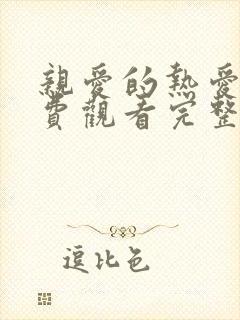 親愛的熱愛
費觀看完整
逗比色